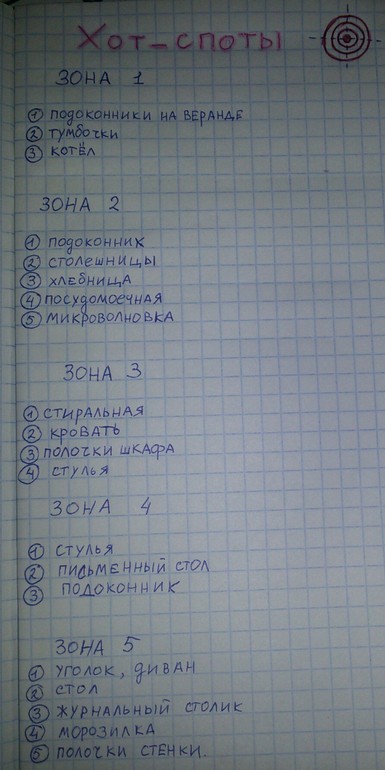 Хот-споты
ЗОНА 1
① подоконники на веранде
② тумбочки
③ котёл
ЗОНА 2
① подоконник
② столешницы
③ хлебница
④ посудомоечная
⑤ микроволновка
ЗОНА 3
① стиральная
② кровать
③ полочки шкафа
④ стулья
ЗОНА 4
① стулья
② письменный стол
③ подоконник
ЗОНА 5
① уголок, диван
② стол
③ журнальный столик
④ морозилка
⑤ полочки стенки.